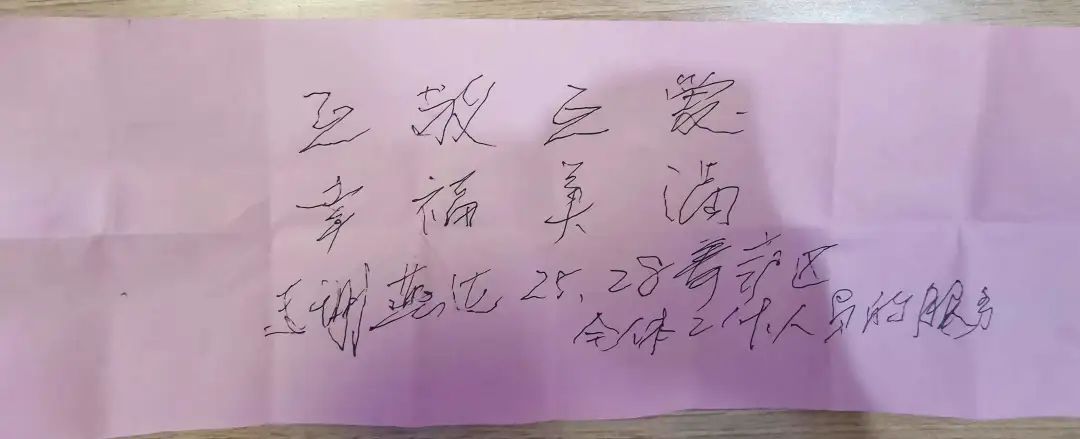 互敬互爱
幸福美满
感谢燕达25、28养护区
全体工作人员的服务